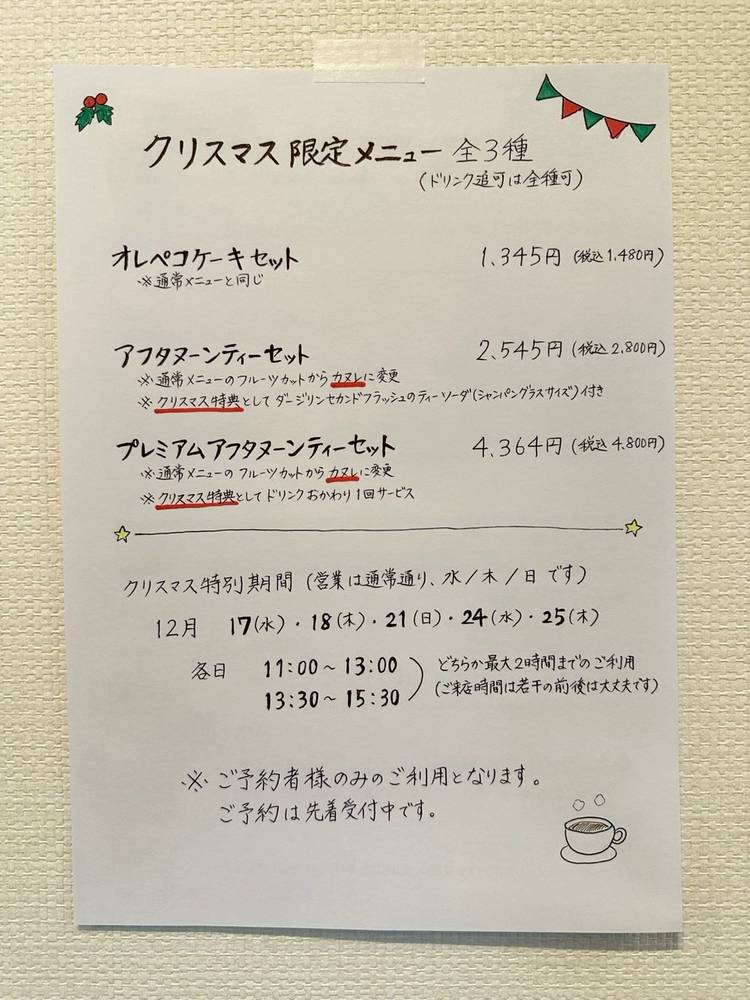 クリスマス限定メニュー 全3種
(ドリンク追可は全種可)
オレペコケーキセット 1,345円 (税込1,480円)
※通常メニューと同じ
アフタヌーンティーセット 2,545円 (税込2,800円)
※通常メニューのフルーツカットからカヌレに変更
※クリスマス特典としてダージリンセカンドフラッシュのティーソーダ(シャンパングラスサイズ)付き
プレミアムアフタヌーンティーセット 4,364円 (税込4,800円)
※通常メニューのフルーツカットからカヌレに変更
※クリスマス特典としてドリンクおかわり1回サービス
クリスマス特別期間 (営業は通常通り、水/木/日です)
12月 17(水)・18(木)・21(日)・24(水)・25(木)
各日 11:00~13:00 どちらか最大2時間までのご利用
13:30~15:30 (ご来店時間は若干の前後は大丈夫です)
※ご予約者様のみのご利用となります。
ご予約は先着受付中です。